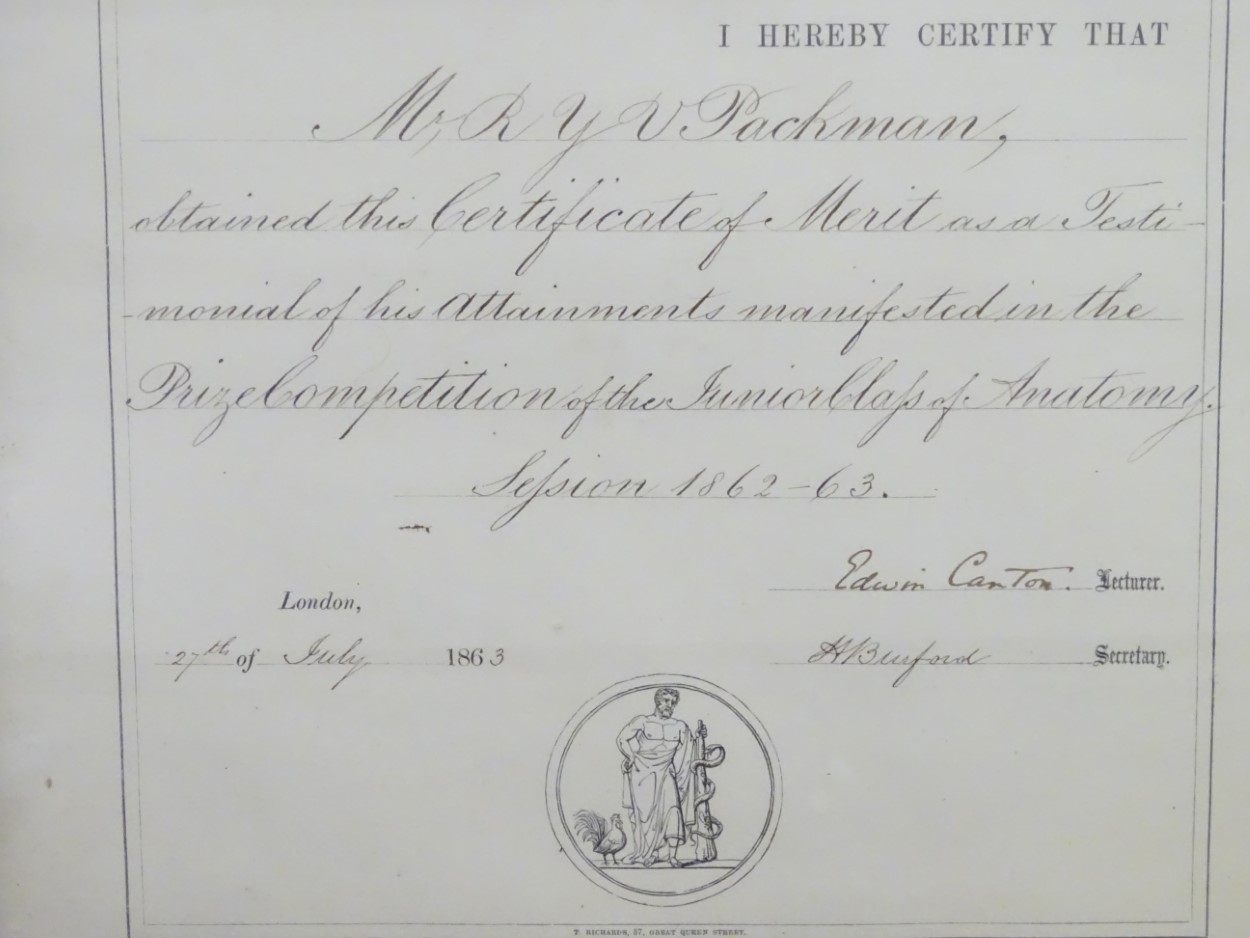 I HEREBY CERTIFY THAT
Mr, R Y V Packman,
obtained this Certificate of Merit as a Testi-
-monial of his Attainments manifested in the
Prize Competition of the Junior Claſs of Anatomy.
Seſsion 1862-63.
Edwin Canton. Lecturer.
London,
27th of July 1863
HBurford Secretary.
T. RICHARDS, 37, GREAT QUEEN STREET.